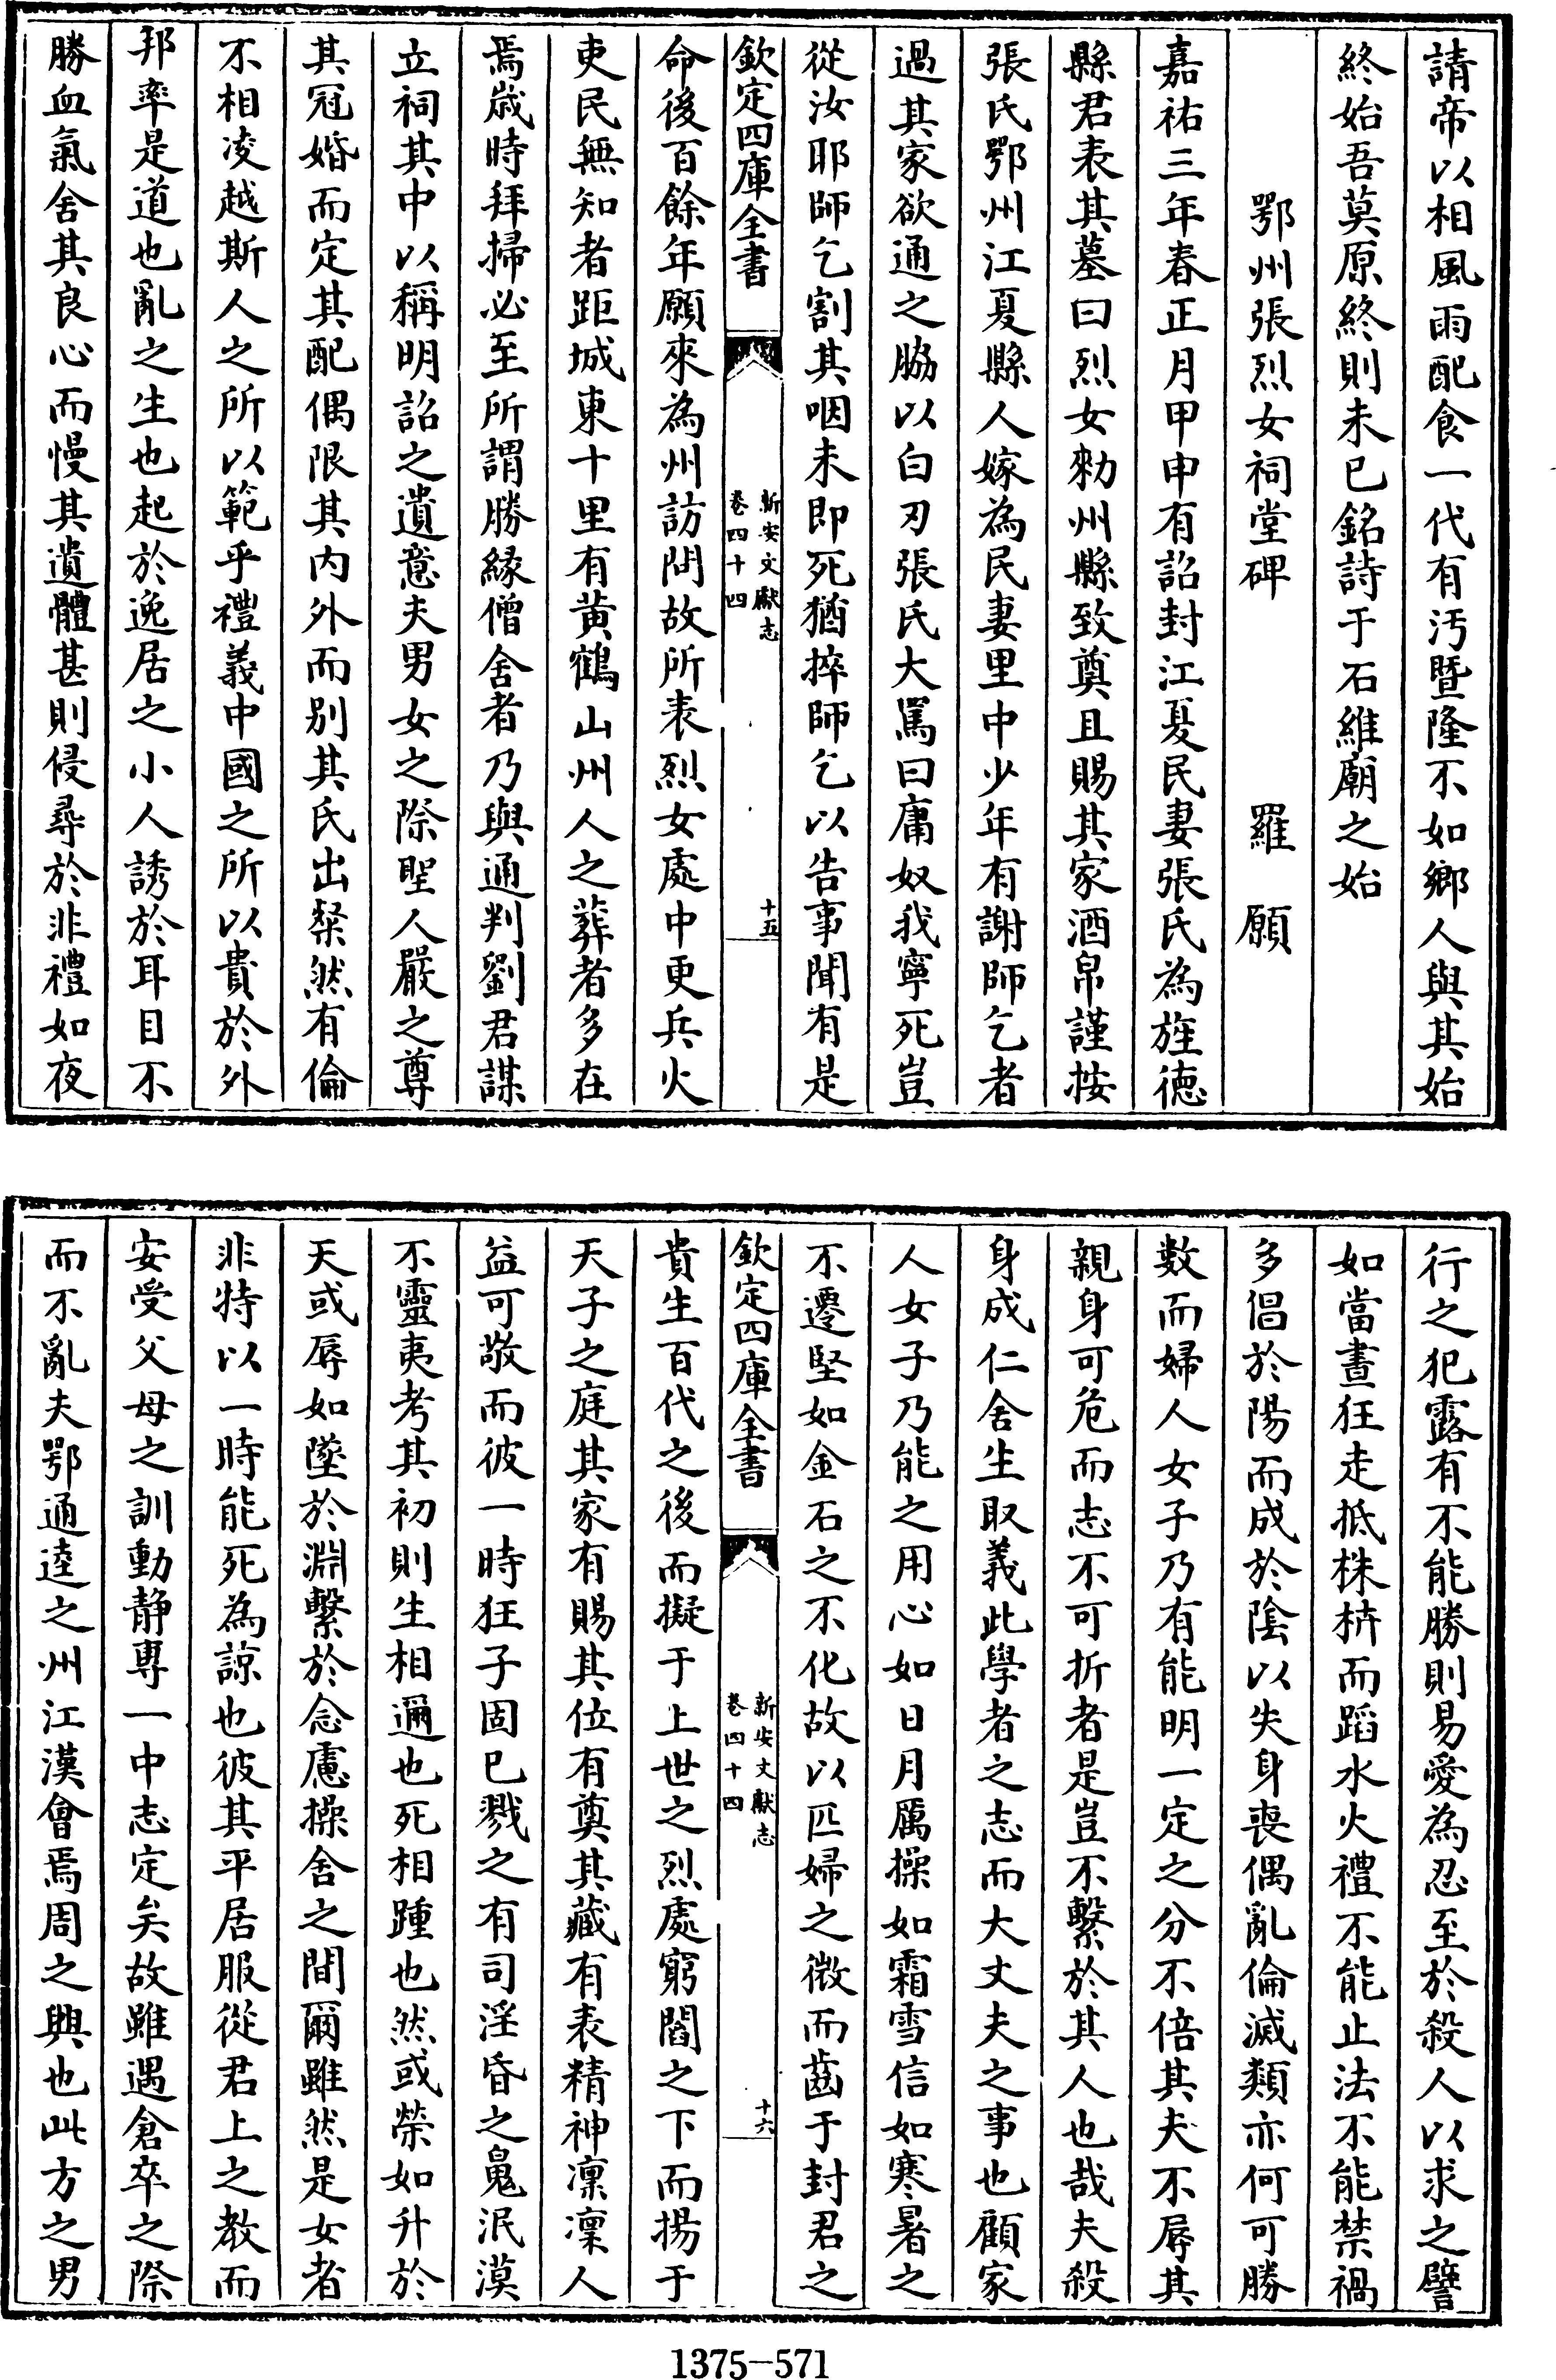 請帝以相風雨配食一代有汚暨隆不如鄉人與其始
終始吾莫原終則未已銘詩于石維廟之始
鄂州張烈女祠堂碑　羅願
嘉祐三年春正月甲申有詔封江夏民妻張氏為旌徳
縣君表其墓曰烈女勑州縣致奠且賜其家酒帛謹按
張氏鄂州江夏縣人嫁為民妻里中少年有謝師乞者
過其家欲通之脇以白刃張氏大罵曰庸奴我寧死豈
從汝耶師乞割其咽未即死猶捽師乞以告事聞有是
欽定四庫全書
新安文獻志
卷四十四
十五
命後百餘年願來為州訪問故所表烈女處中更兵火
吏民無知者距城東十里有黄鶴山州人之葬者多在
焉歲時拜掃必至所謂勝緣僧舍者乃與通判劉君謀
立祠其中以稱明詔之遺意夫男女之際聖人嚴之尊
其冠婚而定其配偶限其内外而别其氏出粲然有倫
不相凌越斯人之所以範乎禮義中國之所以貴於外
邦率是道也亂之生也起於逸居之小人誘於耳目不
勝血氣舍其良心而慢其遺體甚則侵尋於非禮如夜
行之犯露有不能勝則易愛為忍至於殺人以求之譬
如當晝狂走抵株枿而蹈水火禮不能止法不能禁禍
多倡於陽而成於陰以失身喪偶亂倫滅類亦何可勝
數而婦人女子乃有能明一定之分不倍其夫不辱其
親身可危而志不可折者是豈不繫於其人也哉夫殺
身成仁舍生取義此學者之志而大丈夫之事也顧家
人女子乃能之用心如日月厲操如霜雪信如寒暑之
不遷堅如金石之不化故以匹婦之微而齒于封君之
欽定四庫全書
新安文獻志
卷四十四
十六
貴生百代之後而擬于上世之烈處窮閻之下而揚于
天子之庭其家有賜其位有奠其藏有表精神凜凜人
益可敬而彼一時狂子固已戮之有司淫昏之鬼泯漠
不靈夷考其初則生相邇也死相踵也然或榮如升於
天或辱如墜於淵繫於念慮操舍之間爾雖然是女者
非特以一時能死為諒也彼其平居服從君上之教而
安受父母之訓動静專一中志定矣故雖遇倉卒之際
而不亂夫鄂通逵之州江漢會焉周之興也此方之男
1375-571